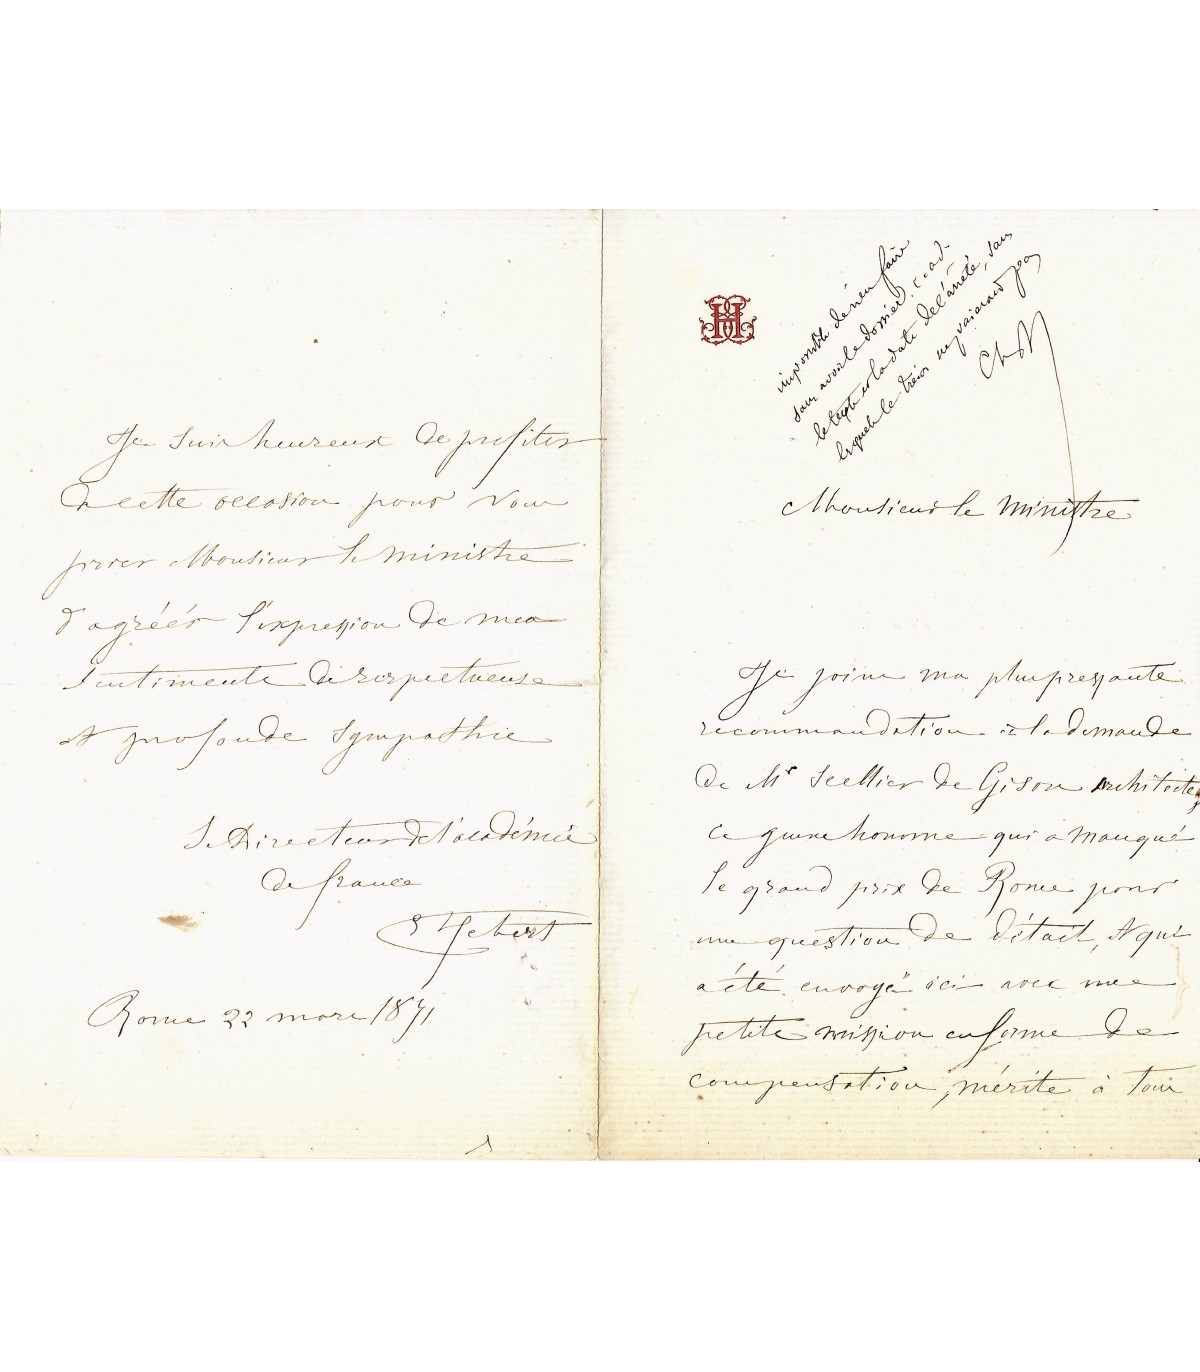 H
impossible de rien faire
sans avoir le dossier. c-a-d-
le texte et la date de l'arrêté, sans
lequel le trésor ne paierait pas
Monsieur le Ministre
Je joins ma plus pressante
recommandation à la demande
de Mr Scellier de Gisors architecte,
ce jeune homme qui a manqué
le grand prix de Rome pour
une question de détail, et qui
a été envoyé ici avec une
petite mission en forme de
compensation, mérite à tous
Je suis heureux de profiter
de cette occasion pour vous
prier Monsieur le Ministre
d'agréer l'expression de mes
sentiments de respectueuse
et profonde sympathie
Le Directeur de l'académie
de france
E Hebert
Rome 22 mars 1871